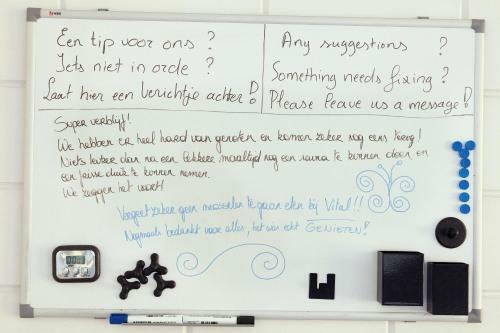 Een tip voor ons ?
Iets niet in orde ?
Laat hier een berichtje achter !
Any suggestions ?
Something needs fixing ?
Please leave us a message !
Super verblijf!
We hebben er heel hard van genoten en komen zeker nog eens terug!
Niets leuker dan na een lekkere maaltijd nog een sauna te kunnen doen en
een fijne duik te kunnen nemen.
We zeggen het voort!
Vergeet zeker geen mosselen te gaan eten bij Vital!!
Nogmaals bedankt voor alles, het was echt GENIETEN!